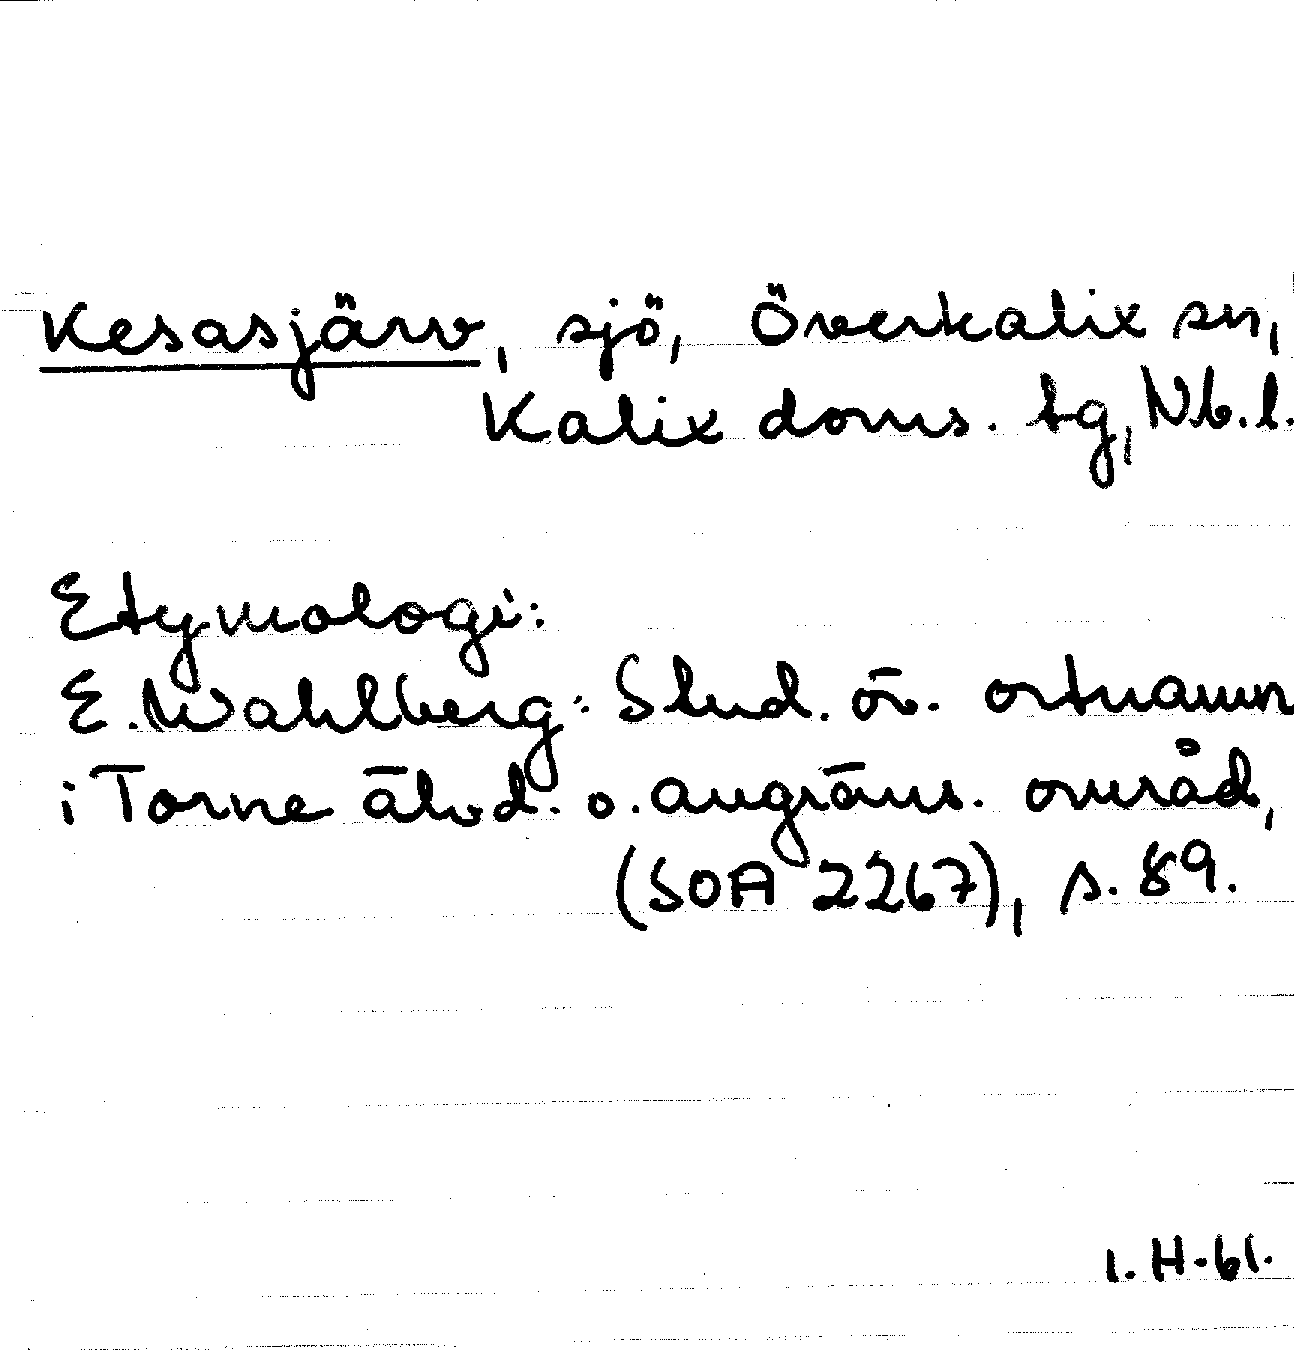 Kesasjärv, sjö, Överkalix sn,
Kalix doms. tg, Nb.l.
Etymologi:
E. Wahlberg: Stud. öv. ortnamn
i Torne älvd. o. angräns. område,
(SOA 2267), s. 89.
I. H-61.